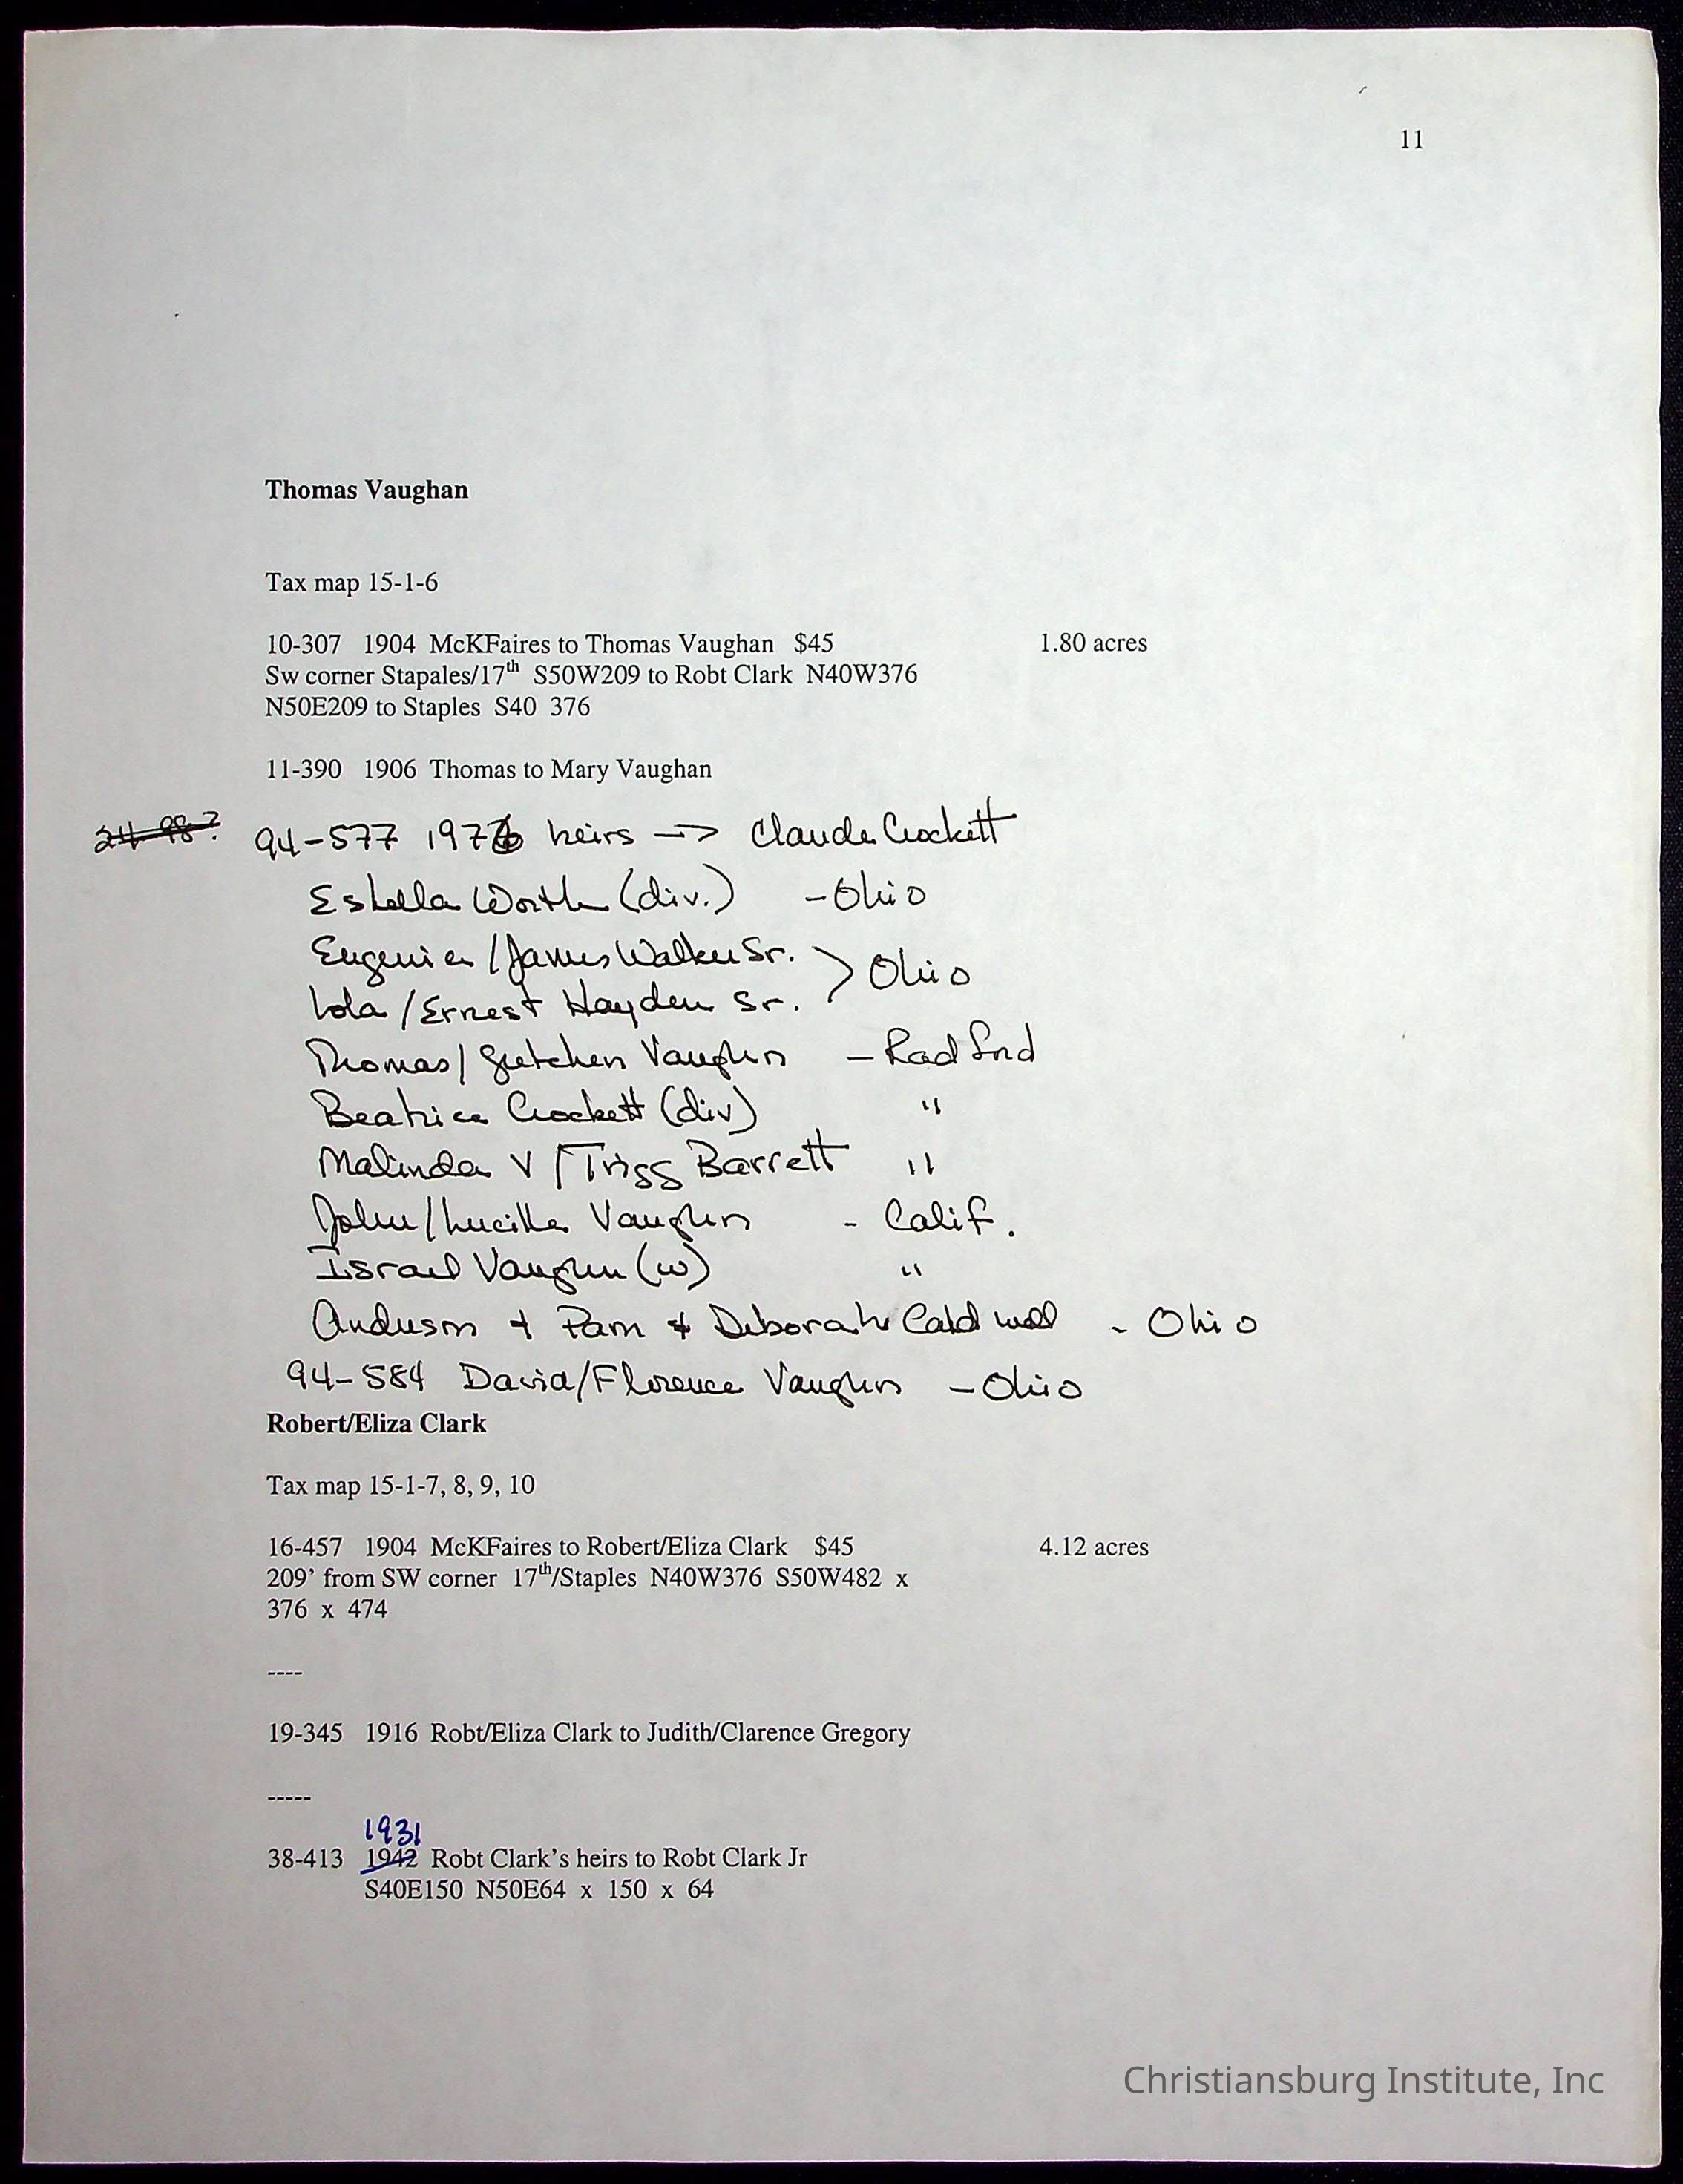 11
Thomas Vaughan
Tax map 15-1-6
10-307 1904 McKFaires to Thomas Vaughan $45 1.80 acres
Sw corner Stapales/17th S50W209 to Robt Clark N40W376
N50E209 to Staples S40 376
11-390 1906 Thomas to Mary Vaughan
24-98?
94-577 1976 heirs -> Claude Crockett
Estella Worth (div.) - Ohio
Eugenia / James Walker Sr.
> Ohio
Lola / Ernest Hayden Sr.
Thomas / Gretchen Vaughn - Radford
Beatrice Crockett (div) "
Malinda V / Trigg Barrett "
John / Lucille Vaughn - Calif.
Israel Vaughn (w) "
Anderson + Pam & Deborah Caldwell - Ohio
94-584 David/Florence Vaughn - Ohio
Robert/Eliza Clark
Tax map 15-1-7, 8, 9, 10
16-457 1904 McKFaires to Robert/Eliza Clark $45 4.12 acres
209' from SW corner 17th/Staples N40W376 S50W482 x
376 x 474
----
19-345 1916 Robt/Eliza Clark to Judith/Clarence Gregory
-----
1931
38-413 1942 Robt Clark's heirs to Robt Clark Jr
S40E150 N50E64 x 150 x 64
Christiansburg Institute, Inc